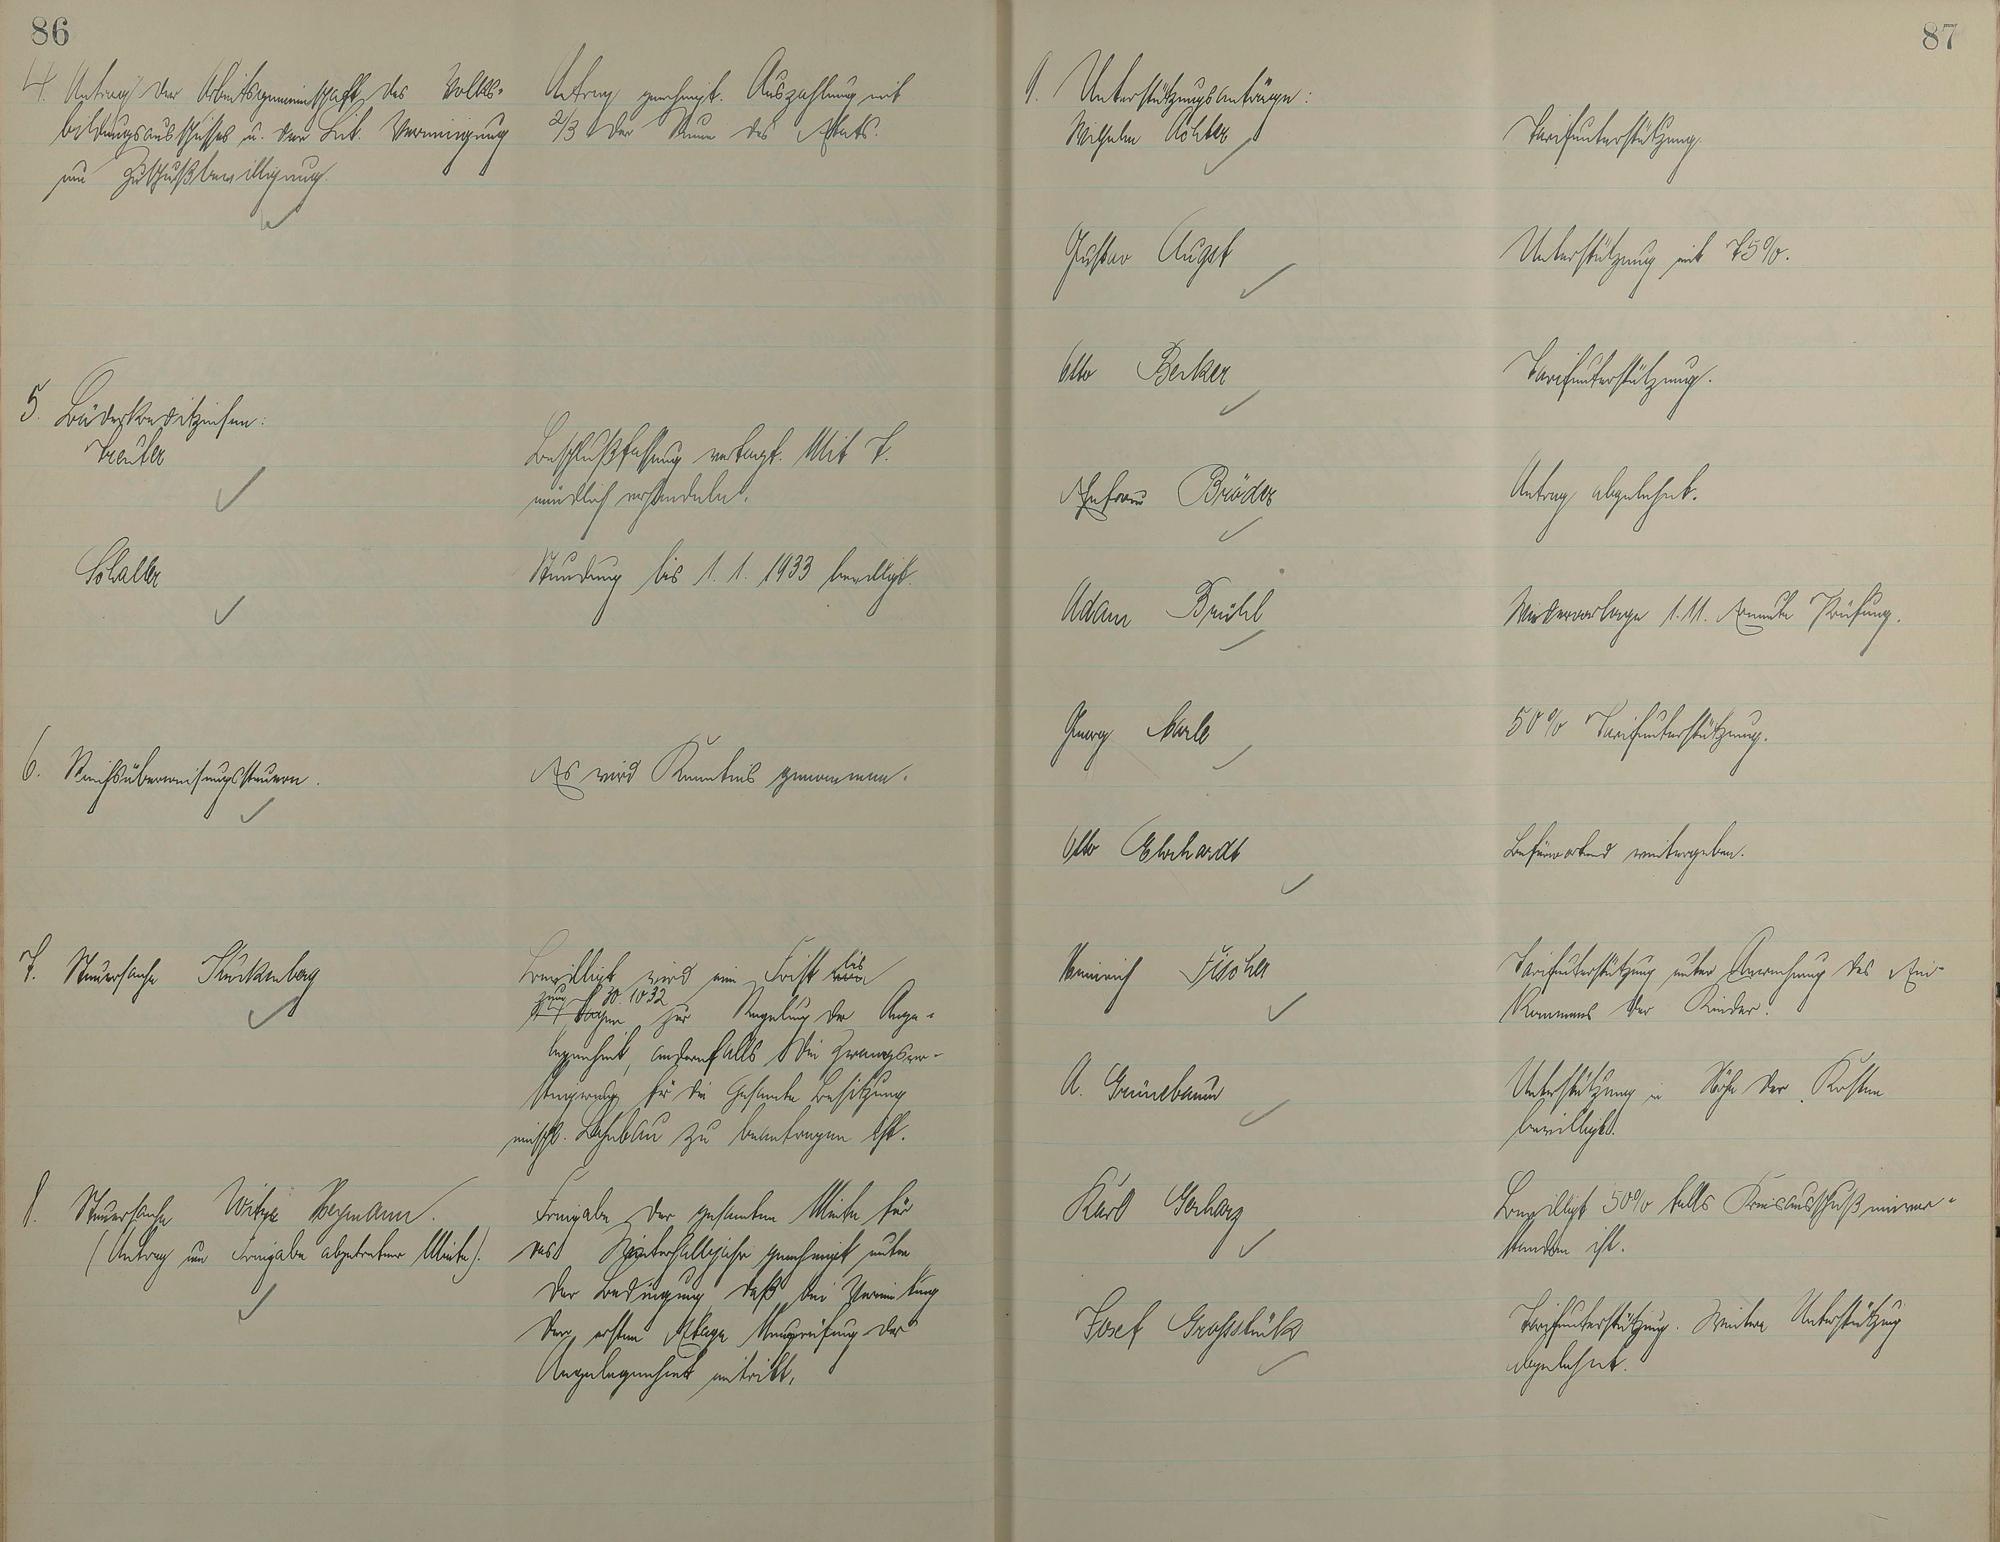 86
4. Antrag der Arbeitsgemeinschaft des Volks-
bildungsausschusses u. der Lit. Vereinigung
um Zuschußbewilligung.
Antrag genehmigt. Auszahlung mit
2/3 der Summe des Etats.
5. Bäderkreditzinsen:
Treutler
Beschlußfassung vertagt. Mit T.
mündlich verhandeln.
Schaller
Stundung bis 1. 1. 1933 bewilligt.
6. Reichsüberweisungssteuern.
Es wird Kenntnis genommen.
7. Steuersache Stuckenberg
Bewilligt wird eine Frist bis
zum 30. 10 32
zur Regelung der Ange-
legenheit, andernfalls die Zwangsver-
steigerung für die gesamte Besitzung
einschl. Lahnbau zu beantragen ist.
8. Steuersache Witwe Heymann.
(Antrag um Freigabe abgetretener Miete).
Freigabe der gesamten Miete für
das Winterhalbjahr genehmigt unter
der Bedingung daß bei Vermietung
der ersten Etage Neuprüfung der
Angelegenheit eintritt.
87
9. Unterstützungsanträge:
Wilhelm Achter
Tarifunterstützung.
Gustav Augst
Unterstützung mit 75%.
Otto Becker
Tarifunterstützung.
Ehefrau Bröder
Antrag abgelehnt.
Adam Brühl
Wiedervorlage 1. 11. Erneute Prüfung.
Georg
50% Tarifunterstützung.
Otto Ehrhardt
Befürwortend weitergeben.
Heinrich Fischer
Tarifunterstützung unter Anrechnung des Ein-
kommens der Kinder.
A. Grünebaum
Unterstützung in Höhe der Kosten
bewilligt.
Karl Gerharz
Bewilligt 50% falls Kreisausschuß einver-
standen ist.
Josef Grossstück
Tarifunterstützung. Weitere Unterstützung
abgelehnt.